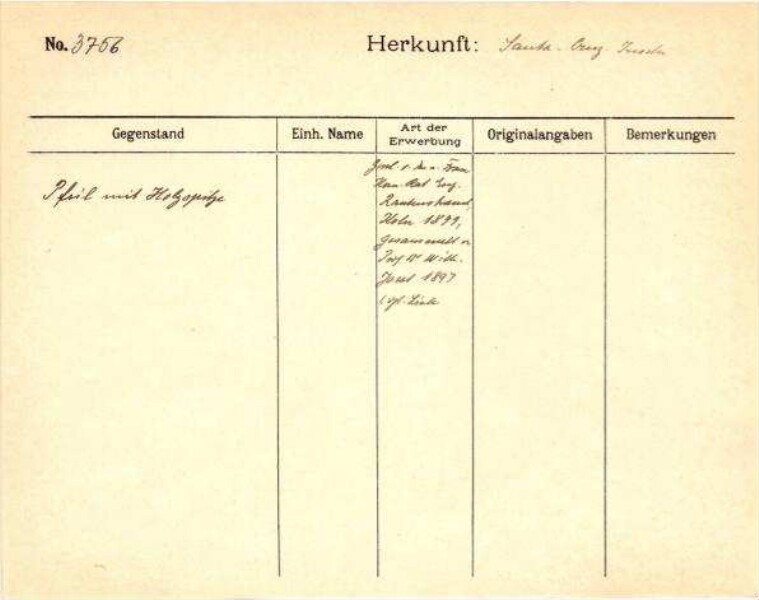 No. 3756 Herkunft: Santa-Cruz-Inseln
Gegenstand Einh. Name Art der Erwerbung Originalangaben Bemerkungen
Pfeil mit Holzspitze
Frau
Kom. Rat Eug.
Rautenstrauch,
Köln 1899,
gesammelt v.
Prof. Dr Wilh.
Joest 1897